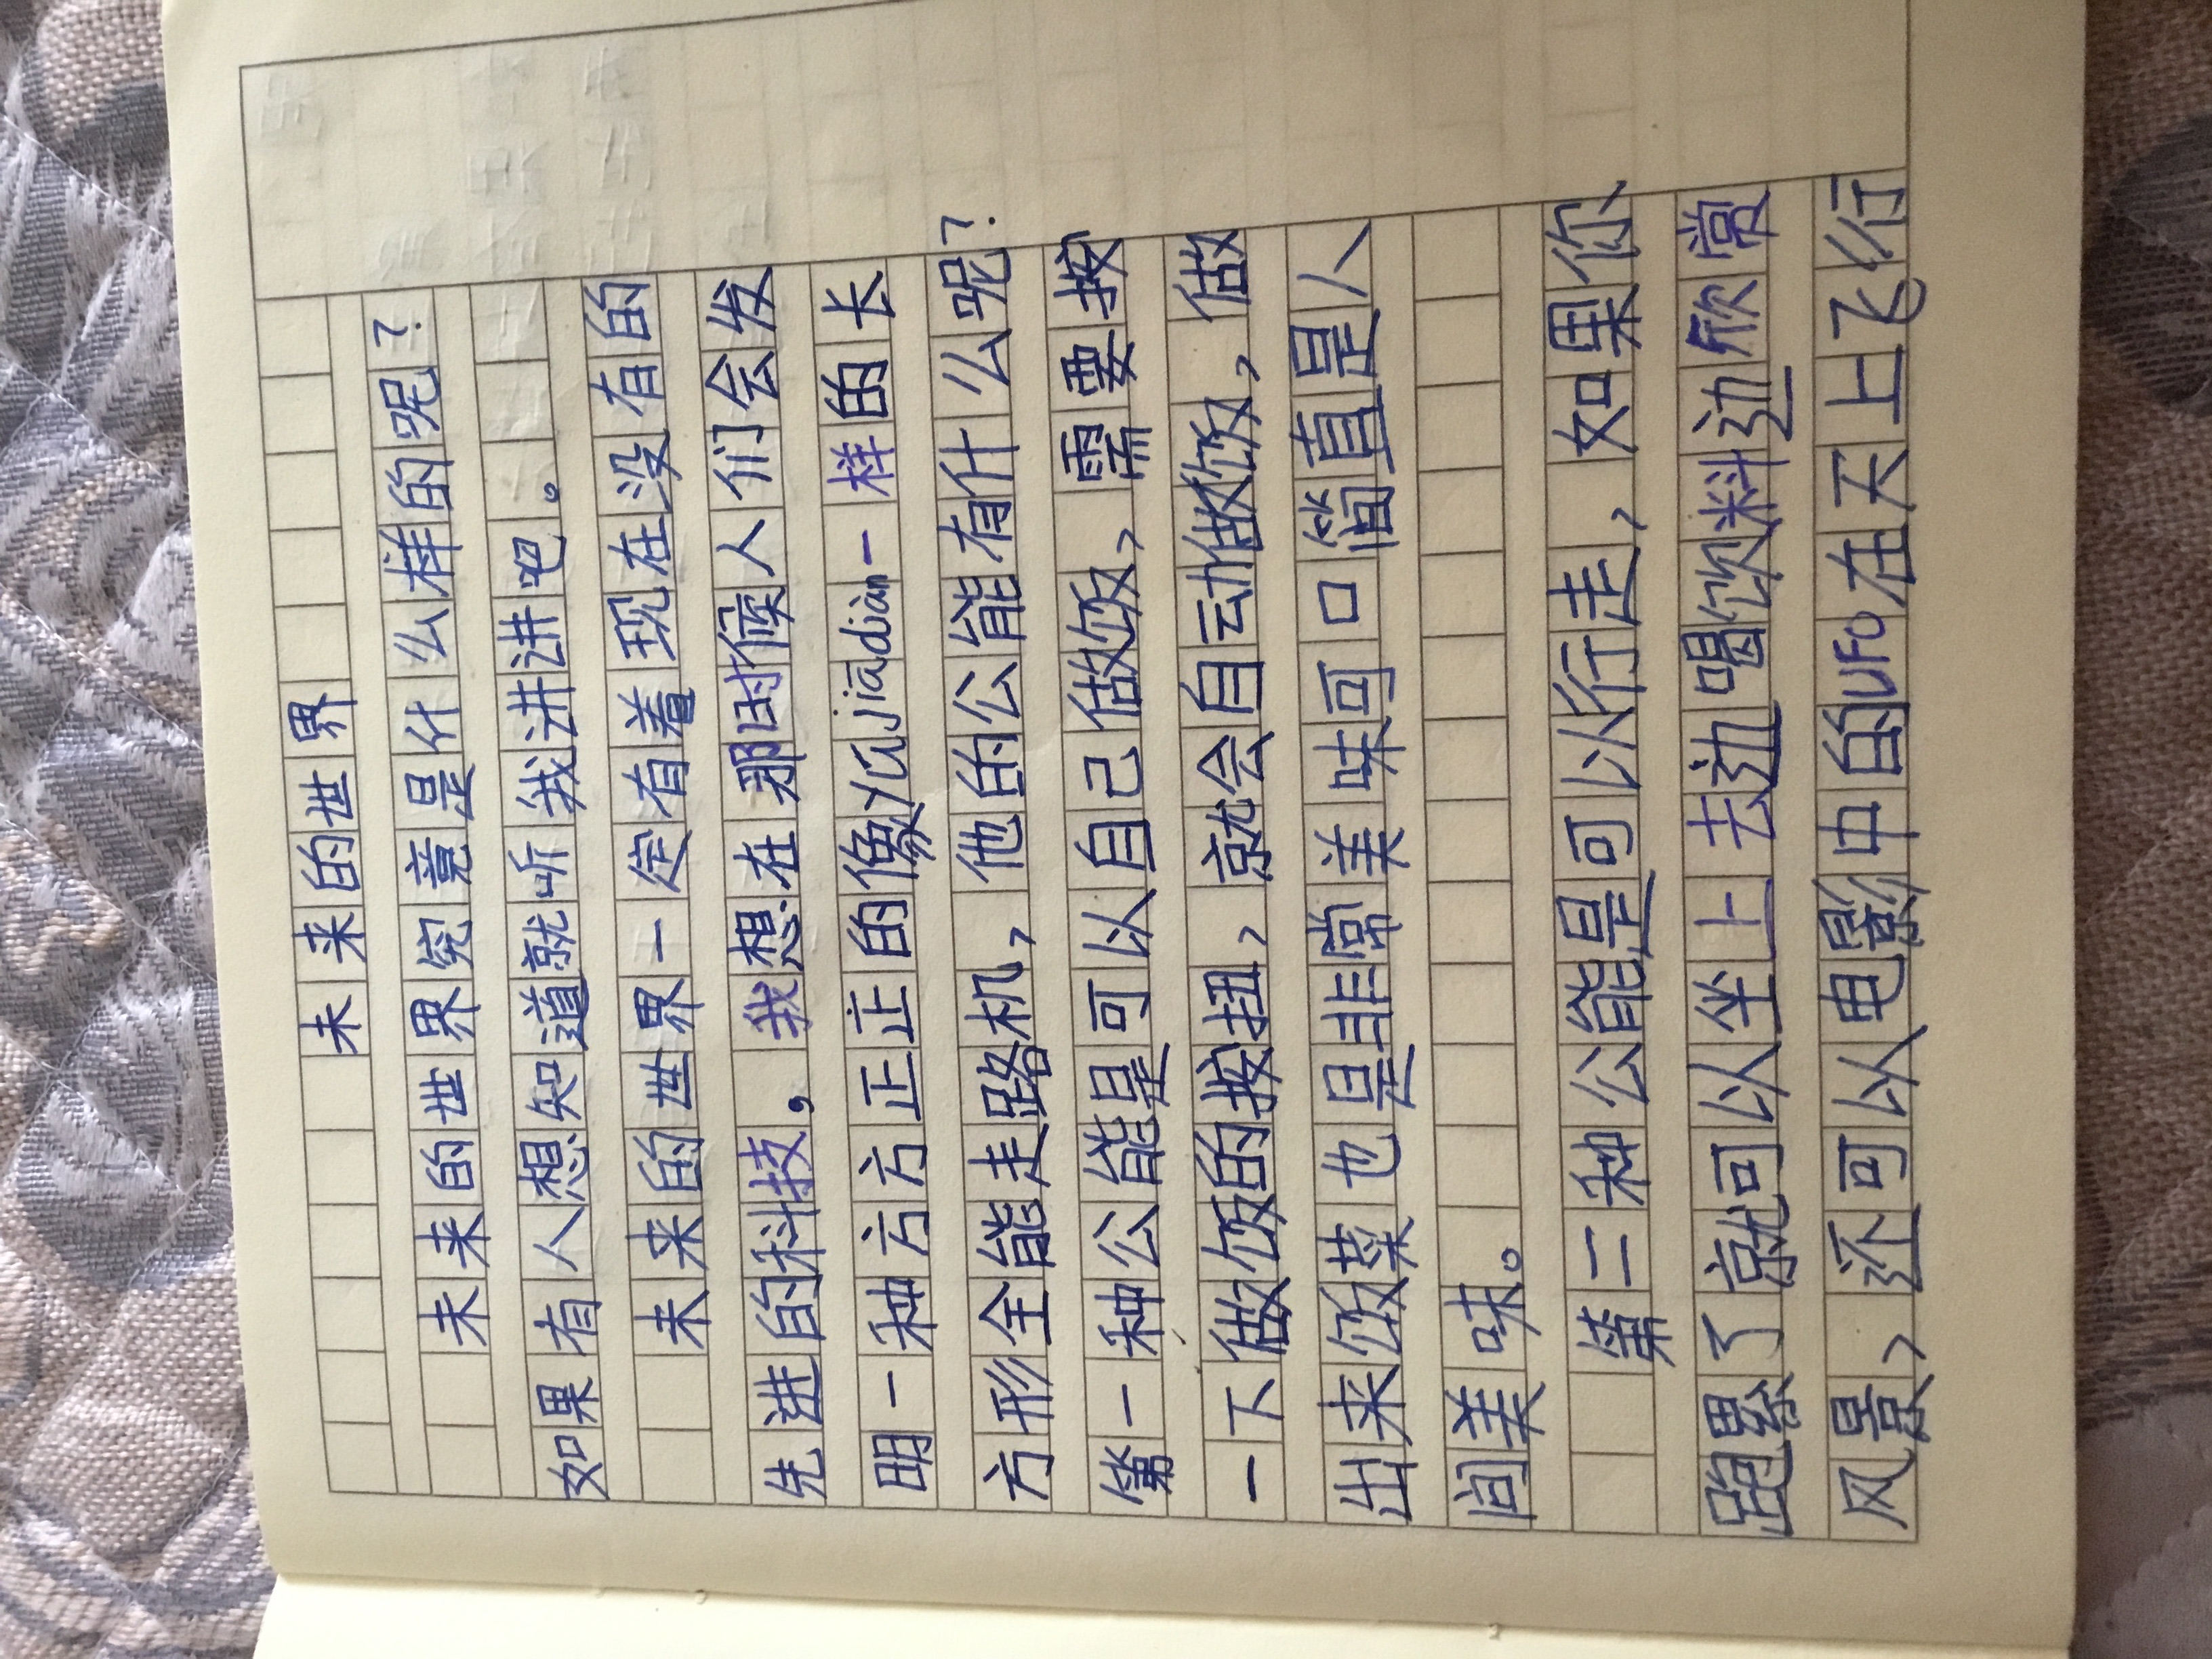 未来的世界
未来的世界究竟是什么样的呢?
如果有人想知道就听我讲讲吧。
未来的世界一定有着现在没有的
先进的科技,我想在那时候人们会发
明一种方方正正的像丫瓜jiādiàn一样的长
方形全能走路机,他的公能有什么呢?
第一种公能是可以自己做饭,需要按
一下做饭的按扭,就会自动做饭,做
出来饭菜也是非常美味可口简直是人
间美味。
第二种公能是可以行走,如果你、
跑累了就可以坐上去边喝饮料边欣赏
风景,还可以电影中的UFO在天上飞行